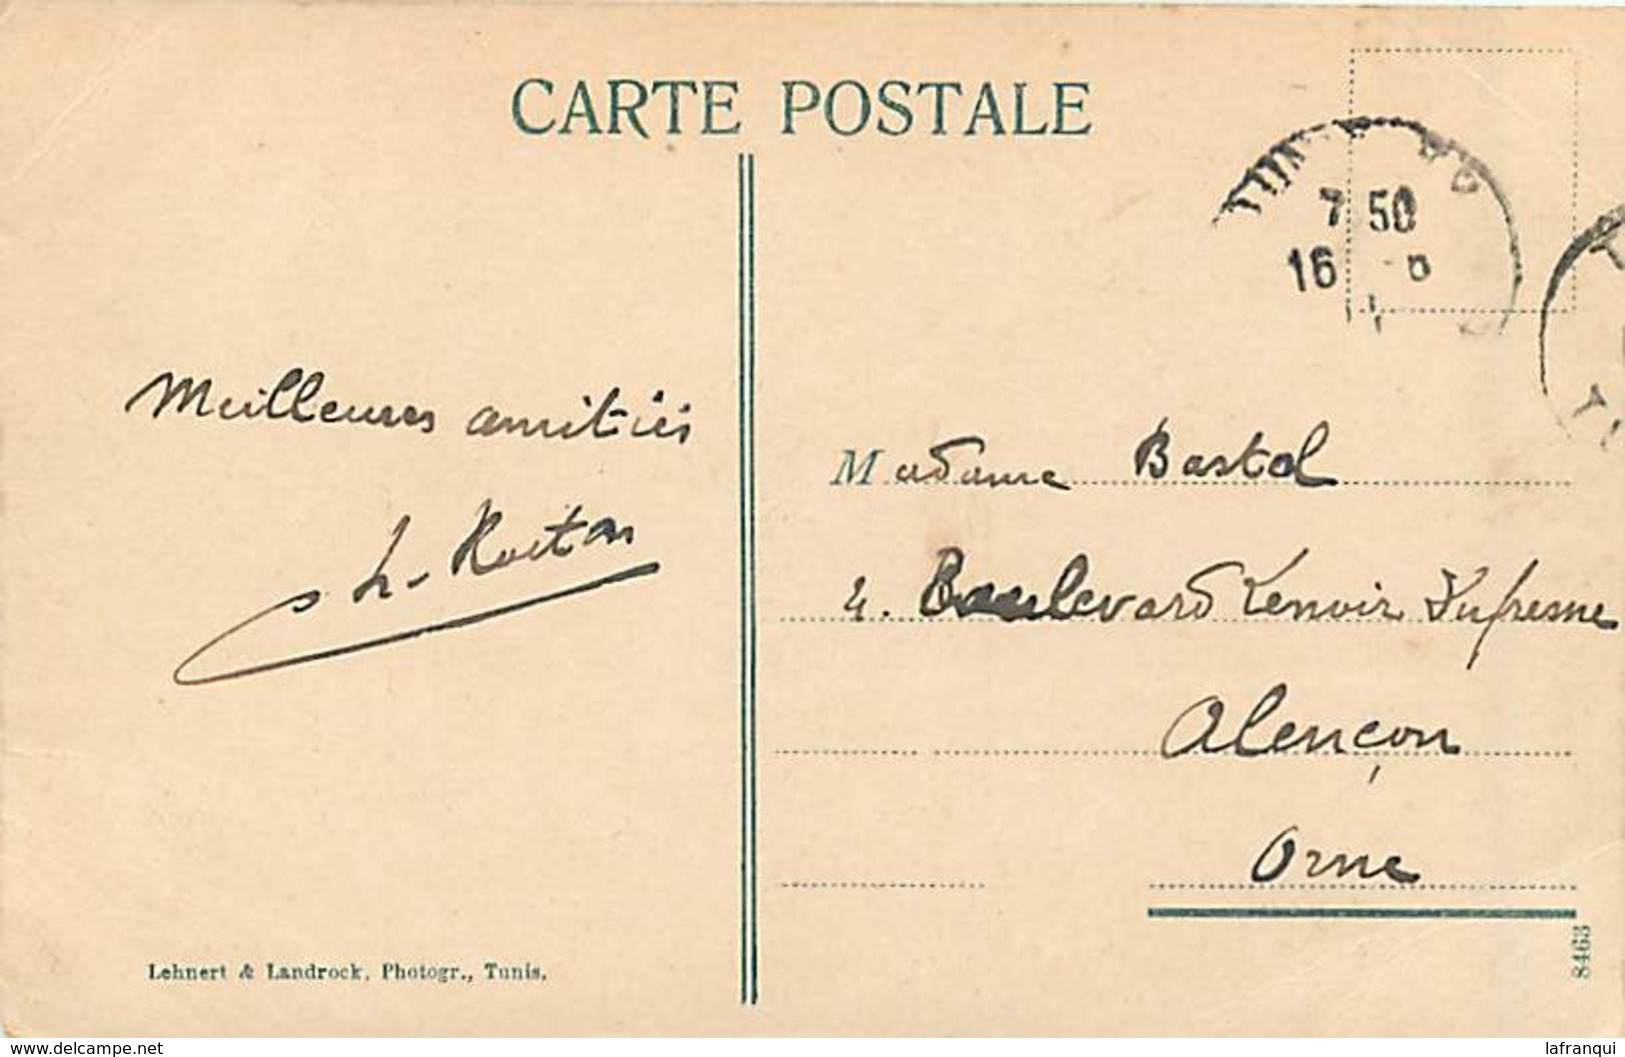 CARTE POSTALE
7 50
16
Meilleures amitiés
Madame Bastel
Boulevard Lenoir Dufresne
Alençon
Orne
Lehnert & Landrock, Photogr., Tunis.
8463
www.delcampe.net
lafranqui